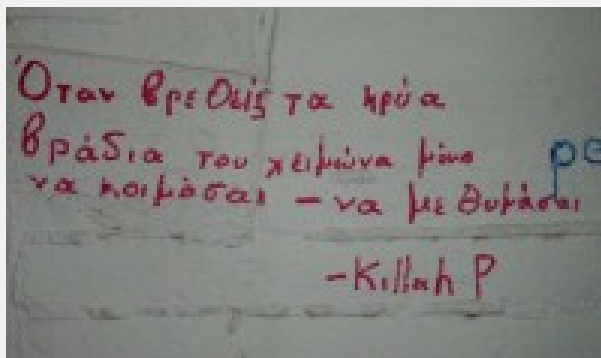 Όταν βρεθείς τα κρύα
βράδια του χειμώνα μόνο
να κοιμάσαι – να με θυμάσαι
-Killah P
ρε